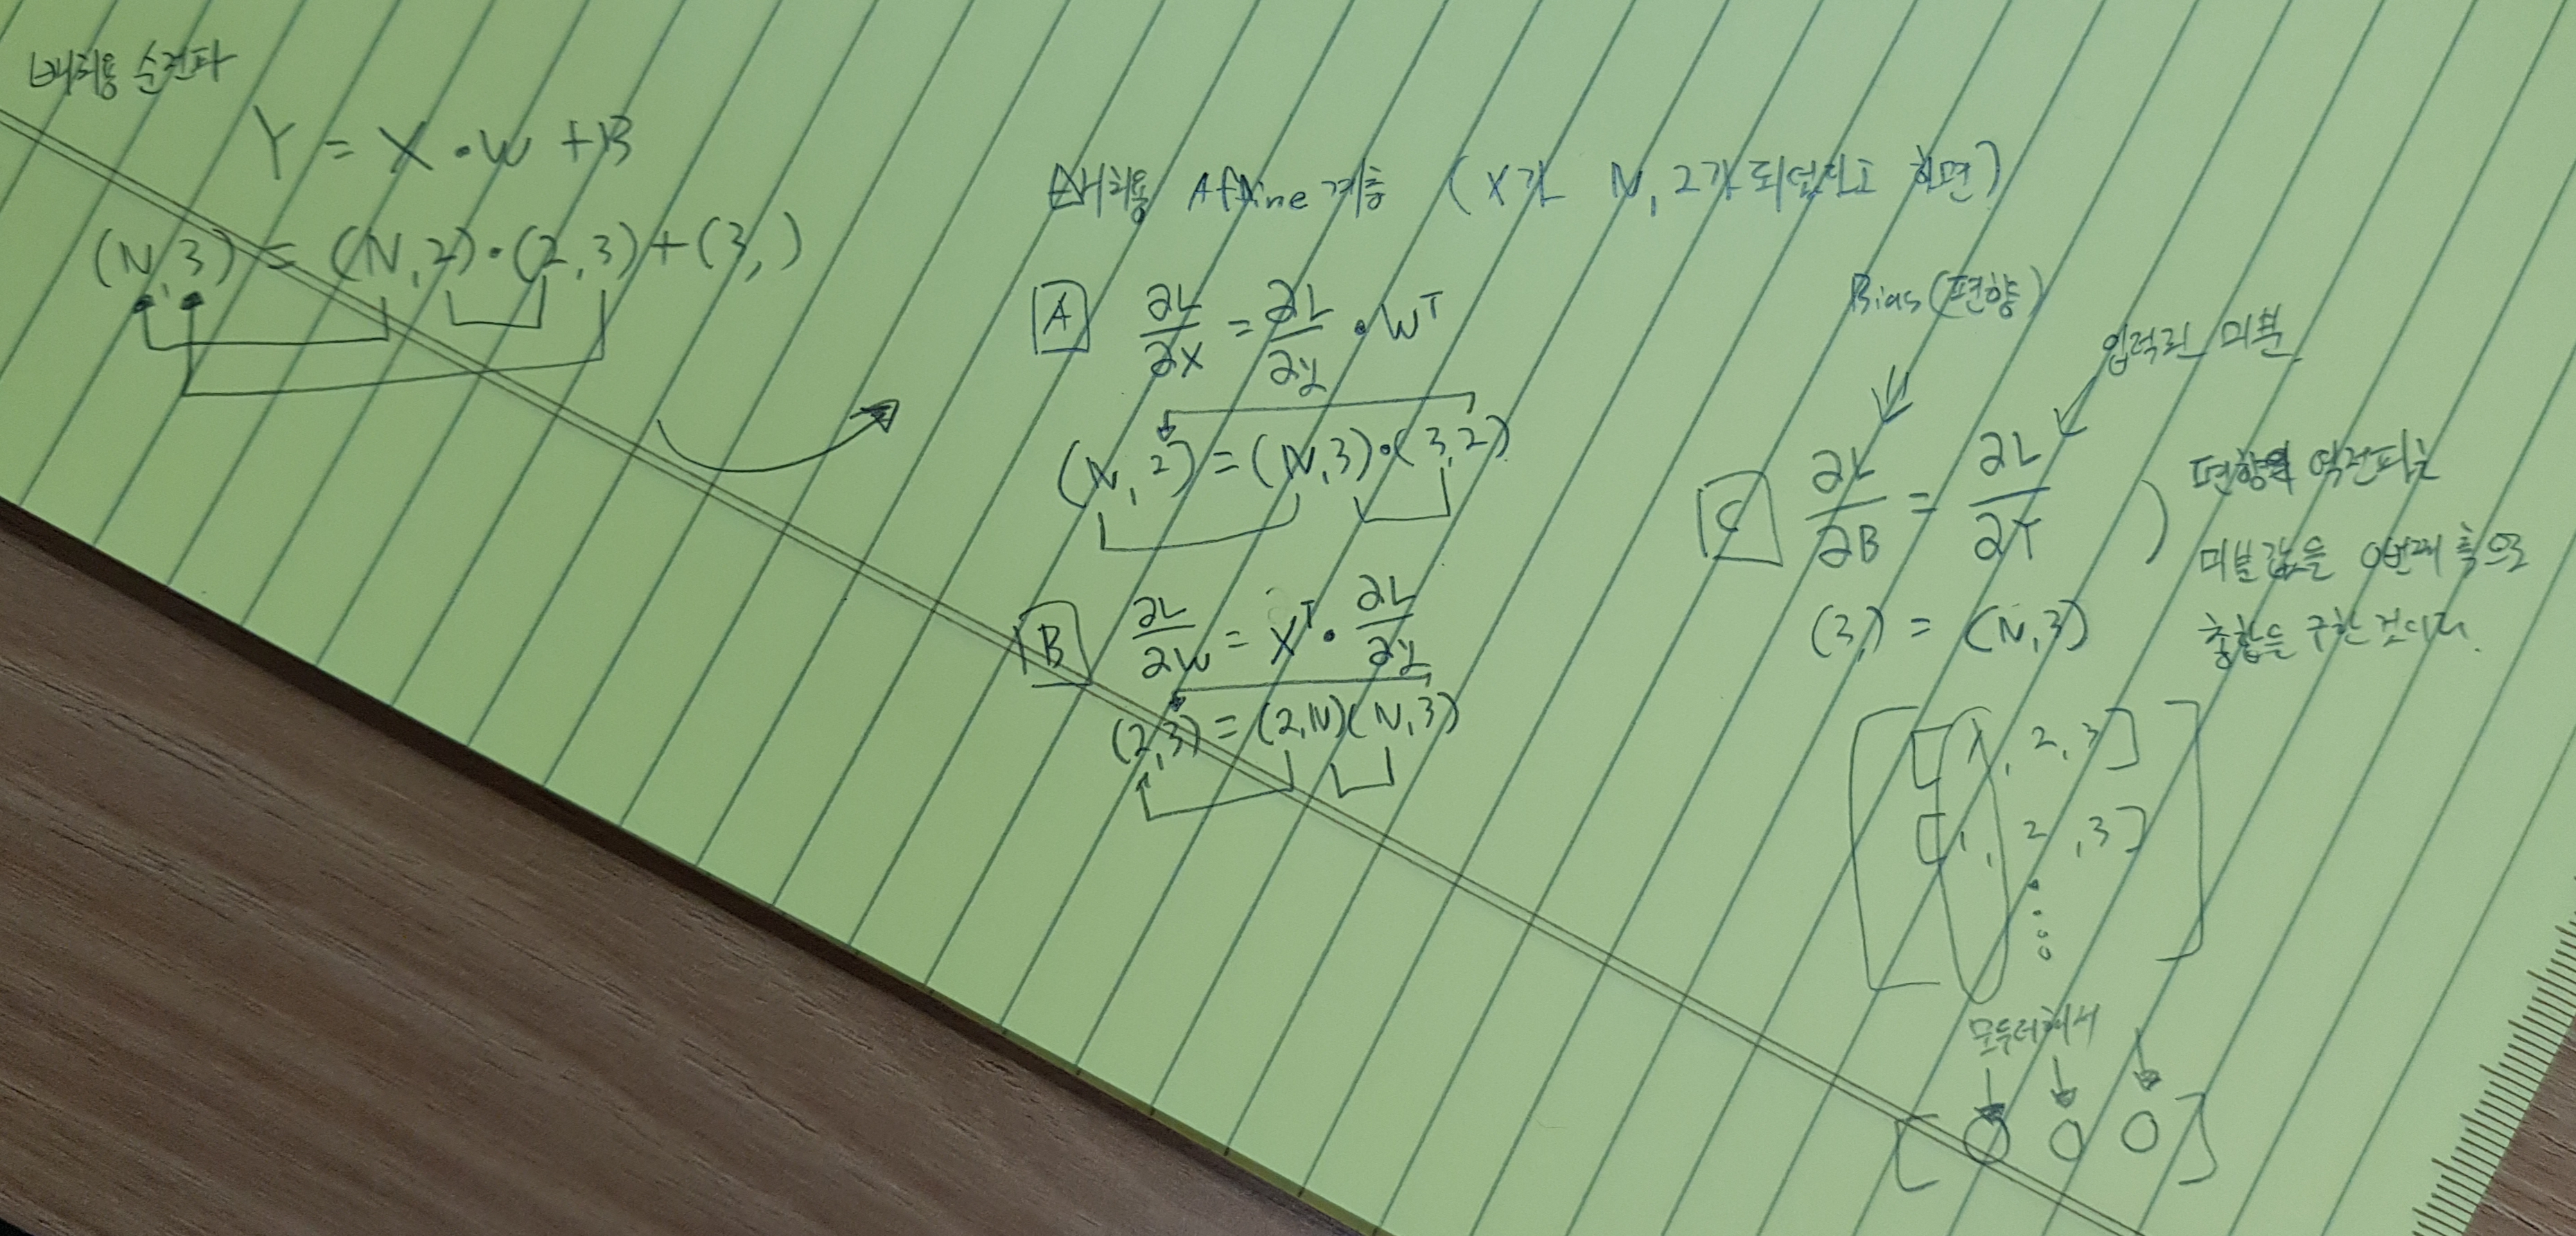 배치용 순전파
Y = X • W + B
(N, 3) = (N, 2) • (2, 3) + (3, )
배치용 Affine 계층 (X가 N, 2가 되었다고 하면)
A ∂L/∂X = ∂L/∂y • W^T
(N, 2) = (N, 3) • (3, 2)
B ∂L/∂W = X^T • ∂L/∂y
(2, 3) = (2, N) (N, 3)
Bias (편향)
입력된 미분.
C ∂L/∂B = ∂L/∂Y )
(3,) = (N, 3)
편향의 역전파는
미분값을 0번째 축으로
총합을 구한 것이다.
[1, 2, 3]
[1, 2, 3]
모두더해서
[ O O O ]